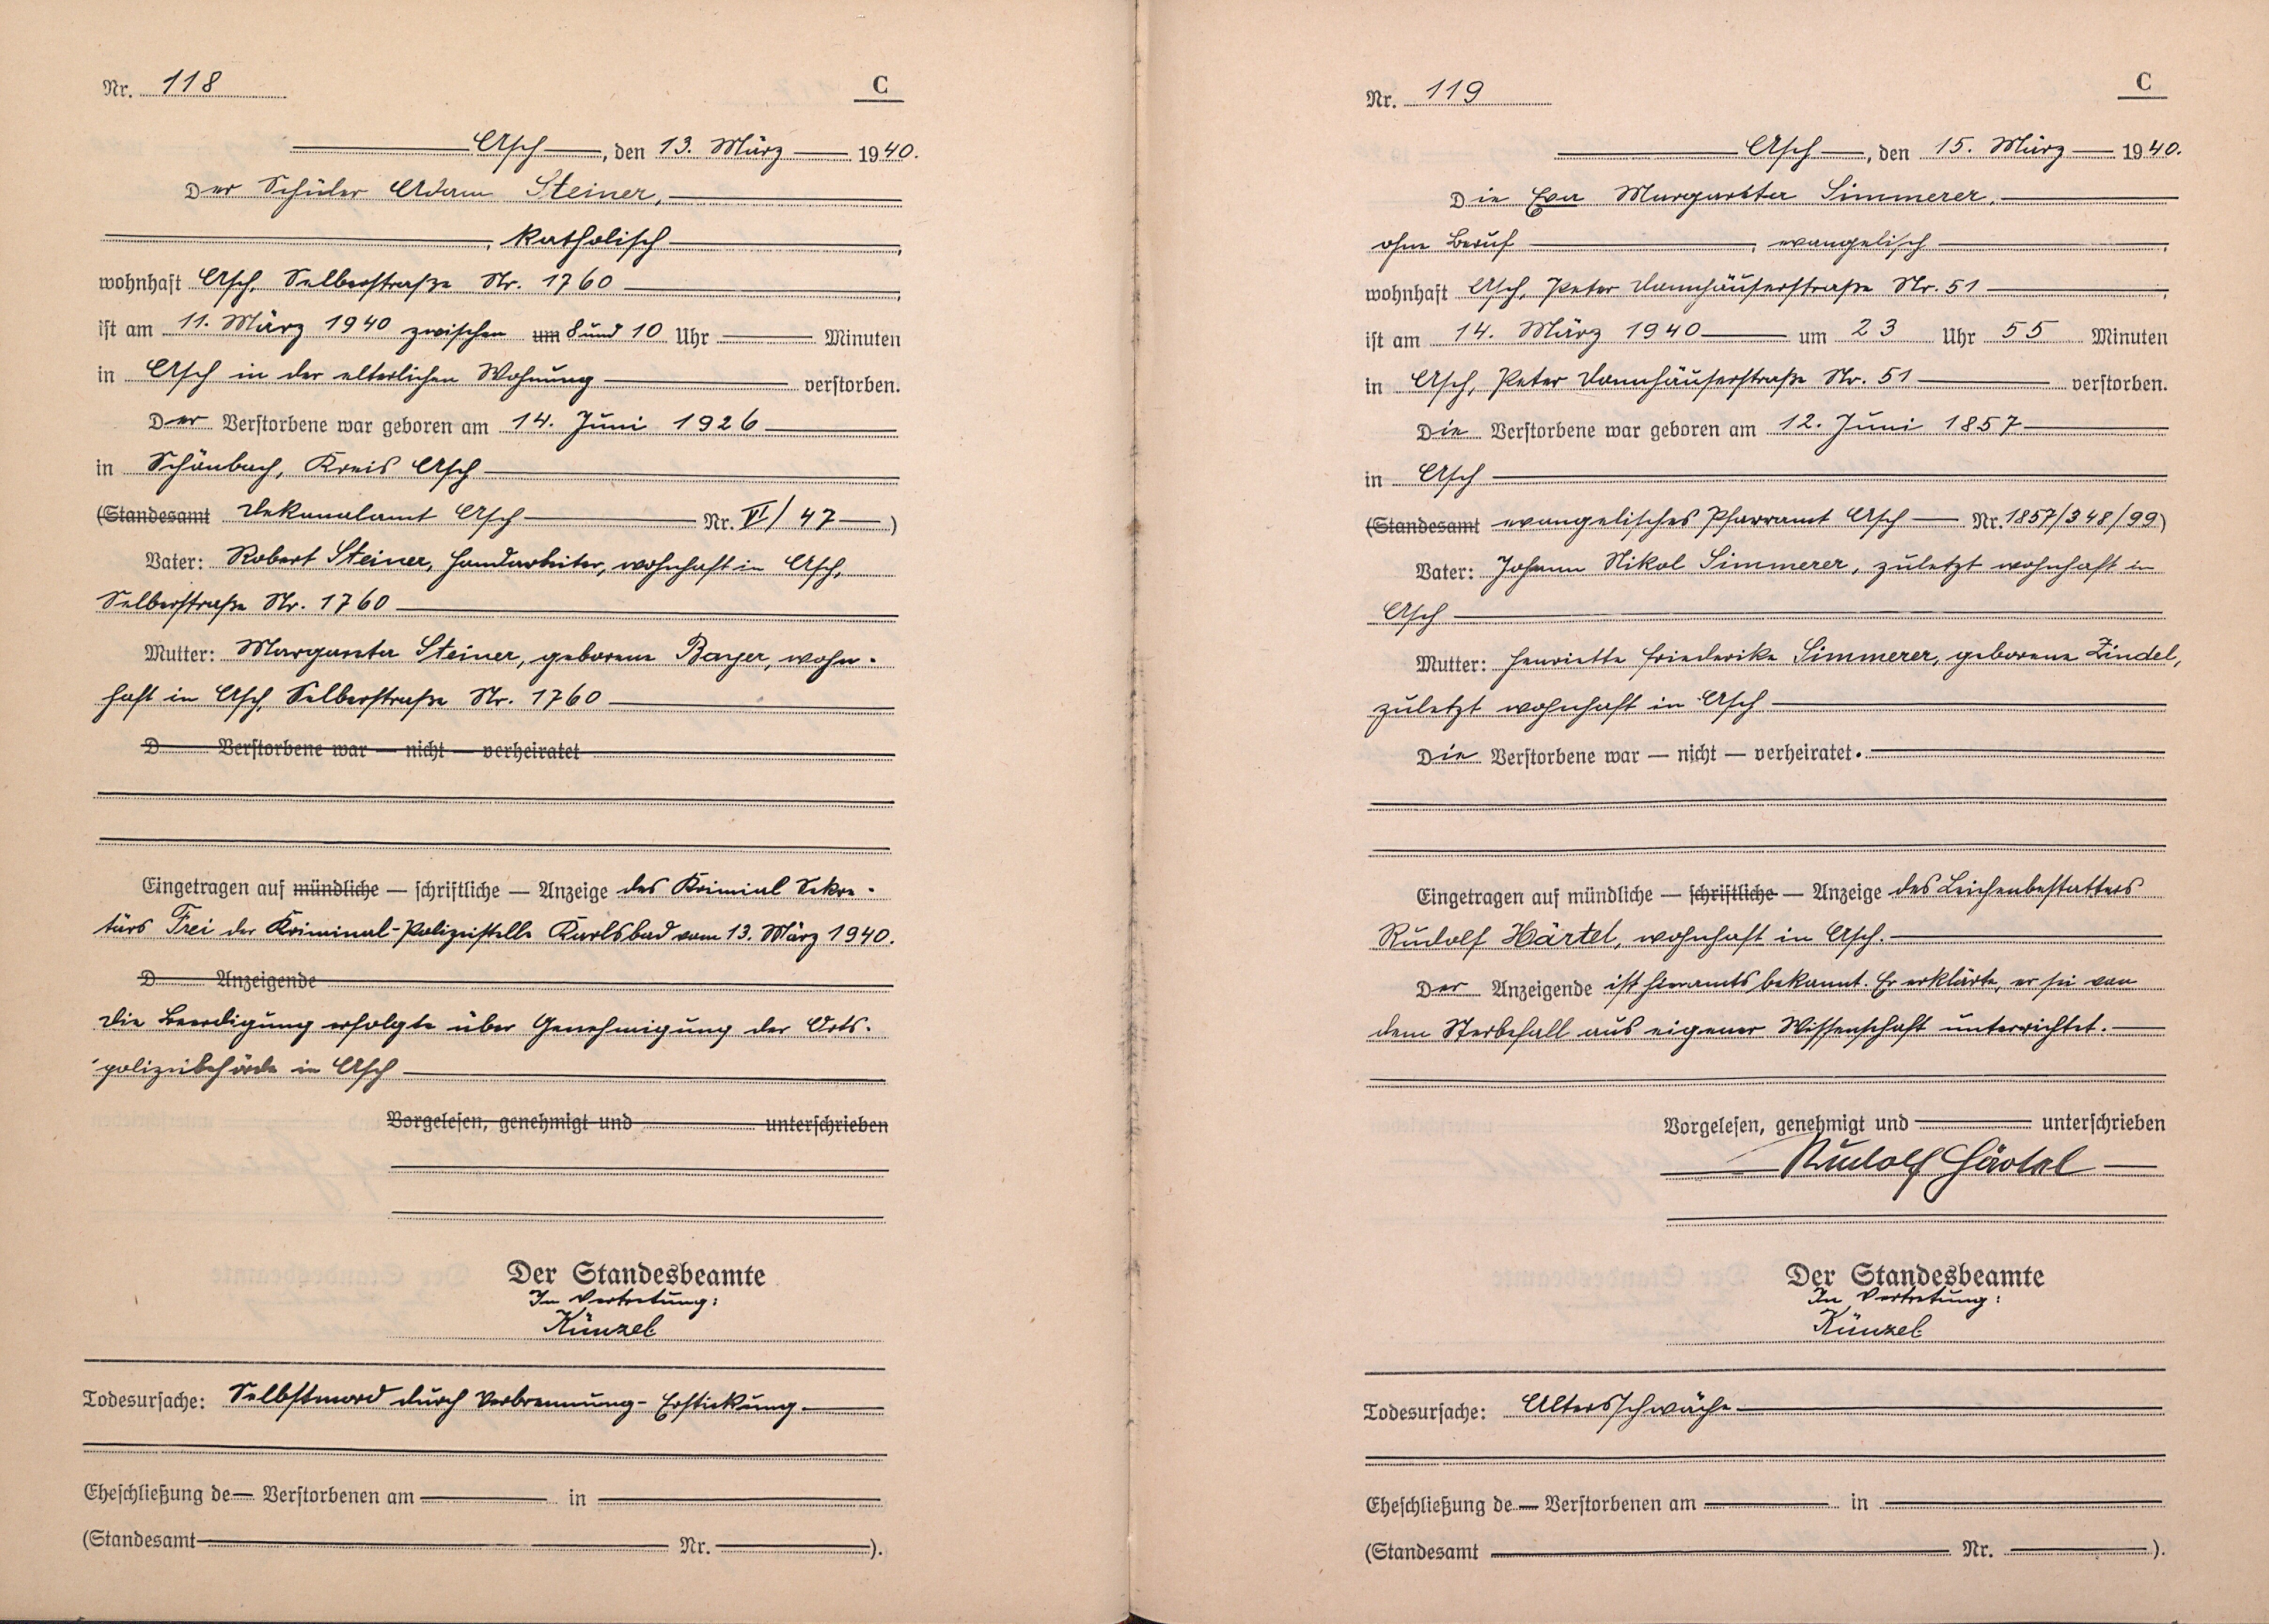 Nr. 118
C
Asch, den 13. März 1940.
Der Schüler Adam Steiner,
, katholisch,
wohnhaft Asch, Selberstraße Nr. 1760,
ist am 11. März 1940 zwischen um 8 und 10 Uhr Minuten
in Asch in der elterlichen Wohnung verstorben.
Der Verstorbene war geboren am 14. Juni 1926
in Schönbach, Kreis Asch
(Standesamt Dekanalamt Asch Nr. VI/47)
Vater: Robert Steiner, Handarbeiter, wohnhaft in Asch,
Selberstraße Nr. 1760
Mutter: Margareta Steiner, geborene Bayer, wohn-
haft in Asch, Selberstraße Nr. 1760
D Verstorbene war — nicht — verheiratet
Eingetragen auf mündliche — schriftliche — Anzeige des Krimial Sekre-
tärs Frei der Kriminal-Polizeistelle Karlsbad vom 13. März 1940.
D Anzeigende
Die Beerdigung erfolgte über Genehmigung der Orts-
polizeibehörde in Asch
Vorgelesen, genehmigt und unterschrieben
Der Standesbeamte
In Vertretung:
Künzel
Todesursache: Selbstmord durch Verbrennung - Erstickung.
Eheschließung de— Verstorbenen am in
(Standesamt Nr. ).
Nr. 119
C
Asch, den 15. März 1940.
Die Eva Margareta Simmerer,
ohne Beruf, evangelisch,
wohnhaft Asch, Peter Donnhäuserstraße Nr. 51,
ist am 14. März 1940 um 23 Uhr 55 Minuten
in Asch, Peter Donnhäuserstraße Nr. 51 verstorben.
Die Verstorbene war geboren am 12. Juni 1857
in Asch
(Standesamt evangelisches Pfarramt Asch Nr. 1857/348/99)
Vater: Johann Nikol Simmerer, zuletzt wohnhaft in
Asch
Mutter: Henriette Friederike Simmerer, geborene Zindel,
zuletzt wohnhaft in Asch
Die Verstorbene war — nicht — verheiratet.
Eingetragen auf mündliche — schriftliche — Anzeige des Leichenbestatters
Rudolf Härtel, wohnhaft in Asch.
Der Anzeigende ist hieramts bekannt. Er erklärte, er sei von
dem Sterbefall aus eigener Wissenschaft unterrichtet.
Vorgelesen, genehmigt und unterschrieben
Rudolf Härtel
Der Standesbeamte
In Vertretung:
Künzel
Todesursache: Altersschwäche
Eheschließung de— Verstorbenen am in
(Standesamt Nr. ).